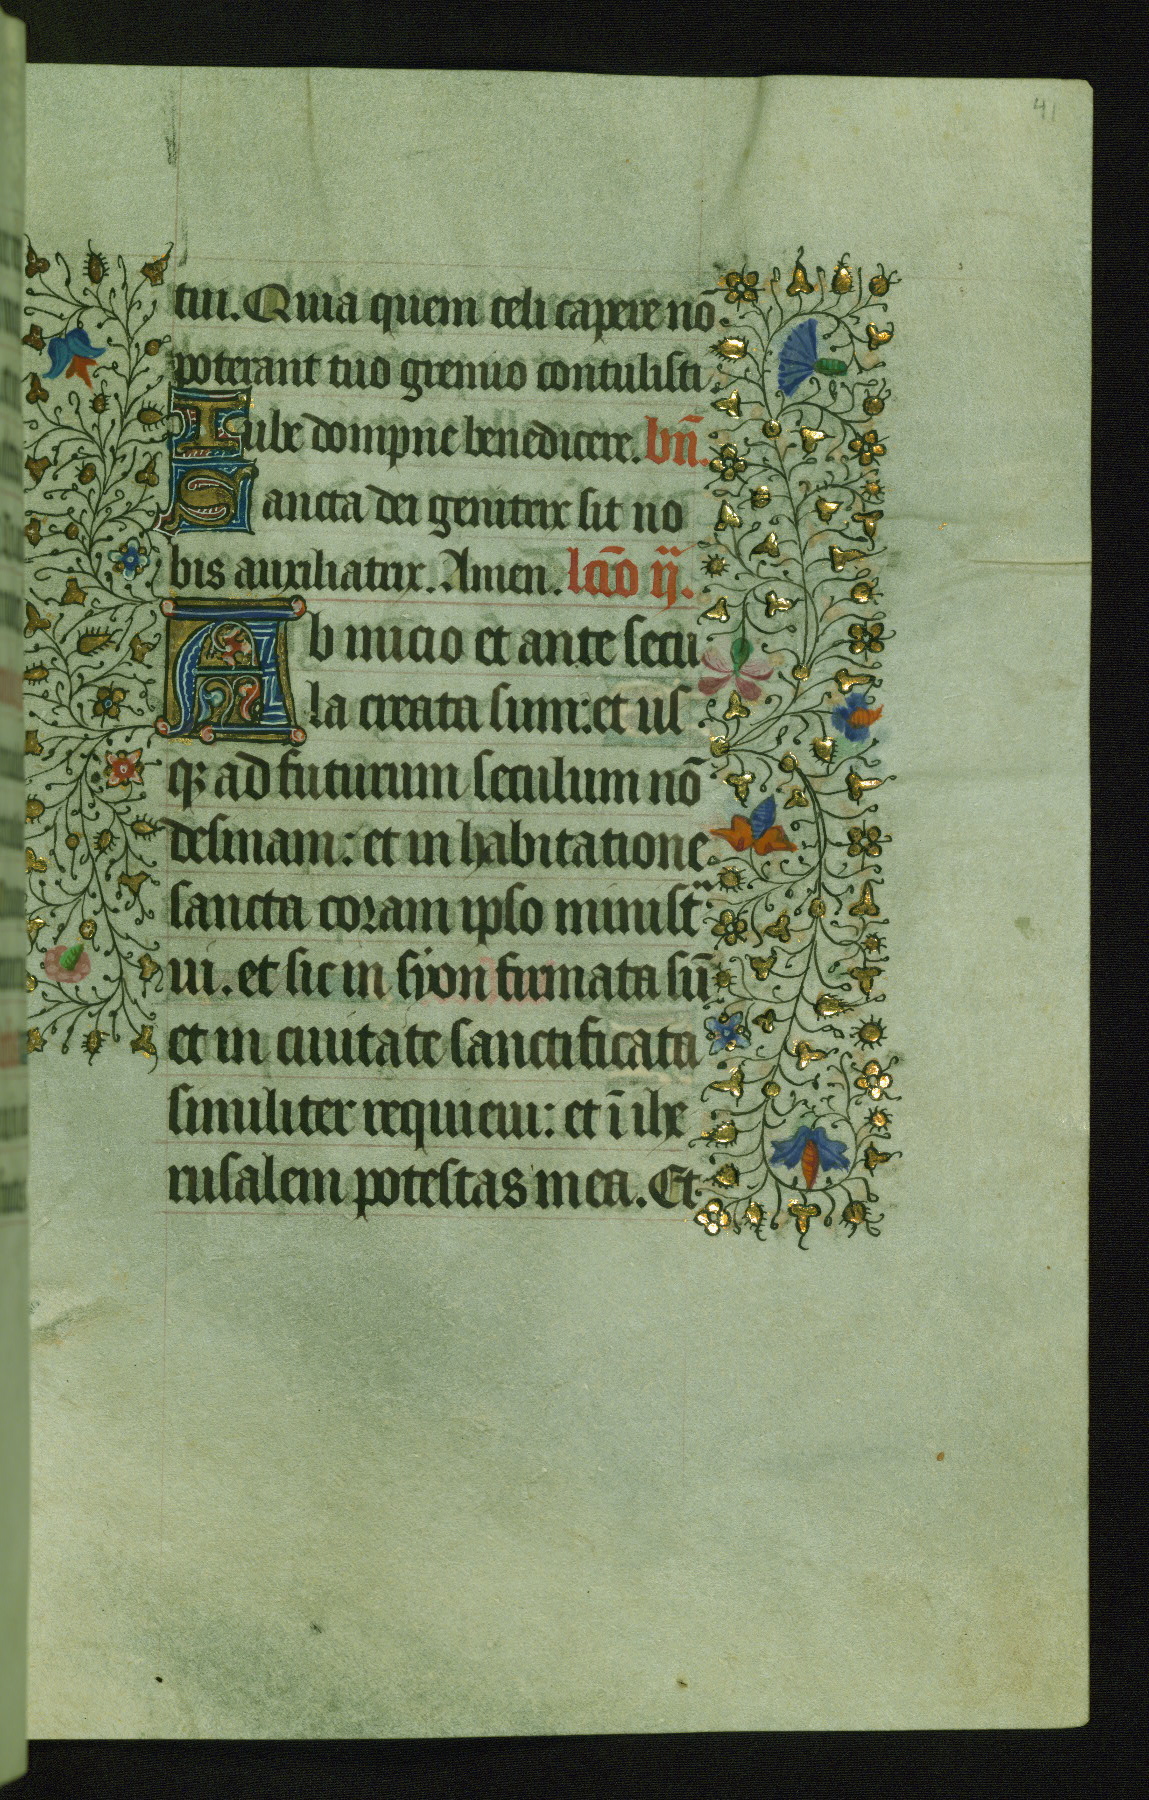 41
tui. Quia quem celi capere nō
poterant tuo gremio contulisti.
Iube dompne benedicere. bn̄.
Sancta dei genitrix sit no
bis auxiliatrix. Amen. lcīo ij.
Ab inicio et ante secu
la creata sum: et us
qꝫ ad futurum seculum nō
desinam: et in habitatione
sancta coram ipso minist̄
ui. et sic in syon firmata sū
et in ciuitate sanctificata
similiter requieui: et ī ihe
rusalem potestas mea. Et